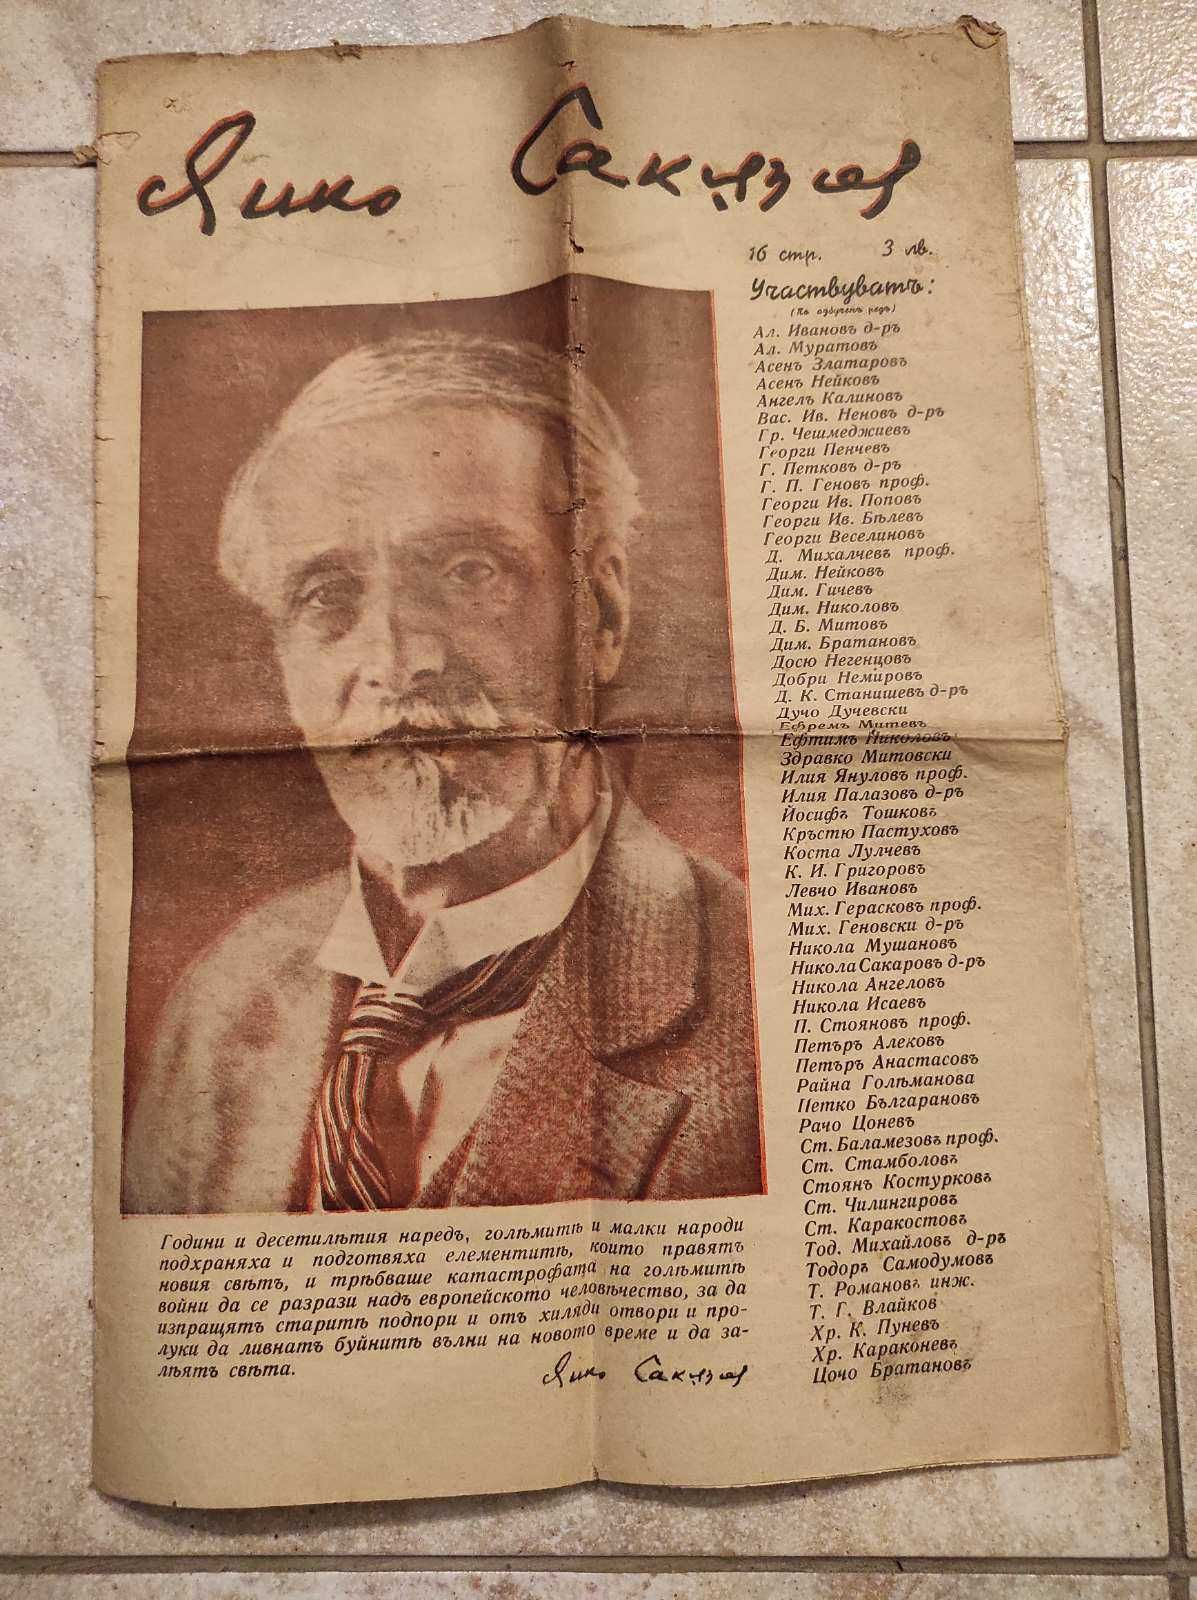 Янко Сакязов
16 стр. 3 лв.
Участвуватъ:
(По азбученъ редъ)
Ал. Ивановъ д-ръ
Ал. Муратовъ
Асенъ Златаровъ
Асенъ Нейковъ
Ангелъ Калиновъ
Вас. Ив. Неновъ д-ръ
Гр. Чешмеджиевъ
Георги Пенчевъ
Г. Петковъ д-ръ
Г. П. Геновъ проф.
Георги Ив. Поповъ
Георги Ив. Бѣлевъ
Георги Веселиновъ
Д. Михалчевъ проф.
Дим. Нейковъ
Дим. Гичевъ
Дим. Николовъ
Д. Б. Митовъ
Дим. Братановъ
Досю Негенцовъ
Добри Немировъ
Д. К. Станишевъ д-ръ
Дучо Дучевски
Ефремъ Митевъ
Ефтимъ Николовъ
Здравко Митовски
Илия Януловъ проф.
Илия Палазовъ д-ръ
Йосифъ Тошковъ
Кръстю Пастуховъ
Коста Лулчевъ
К. И. Григоровъ
Левчо Ивановъ
Мих. Герасковъ проф.
Мих. Геновски д-ръ
Никола Мушановъ
Никола Сакаровъ д-ръ
Никола Ангеловъ
Никола Исаевъ
П. Стояновъ проф.
Петъръ Алековъ
Петъръ Анастасовъ
Райна Голѣманова
Петко Българановъ
Рачо Цоневъ
Ст. Баламезовъ проф.
Ст. Стамболовъ
Стоянъ Костурковъ
Ст. Чилингировъ
Ст. Каракостовъ
Тод. Михайловъ д-ръ
Тодоръ Самодумовъ
Т. Романовъ инж.
Т. Г. Влайков
Хр. К. Пуневъ
Хр. Караконевъ
Цочо Братановъ
Години и десетилѣтия наредъ, голѣмитѣ и малки народи
подхраняха и подготвяха елементитѣ, които правятъ
новия свѣтъ, и трѣбваше катастрофата на голѣмитѣ
войни да се разрази надъ европейското человѣчество, за да
изпращятъ старитѣ подпори и отъ хиляди отвори и про-
луки да ливнатъ буйнитѣ вълни на новото време и да за-
лѣятъ свѣта.
Янко Сакязов